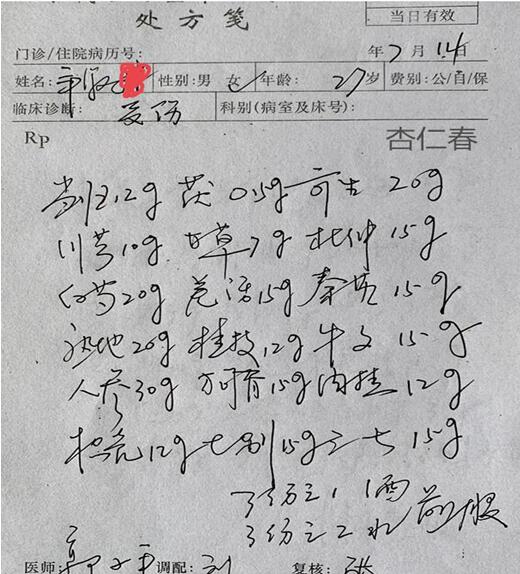 处方笺
当日有效
门诊/住院病历号: 年 7 月 14 日
姓名: 性别:男 女 年龄: 27 岁 费别:公/自/保
临床诊断: 科别(病室及床号):
Rp 杏仁春
当归12g 茯 15g 寄生 20g
川芎10g 甘草7g 杜仲15g
白芍20g 15g 秦艽15g
熟地20g 桂枝12g 牛文15g
人参30g 15g 肉桂12g
12g 七别15g 三七15g
3份之1酒
3份之2水 煎服
医师: 调配:刘 复核:张